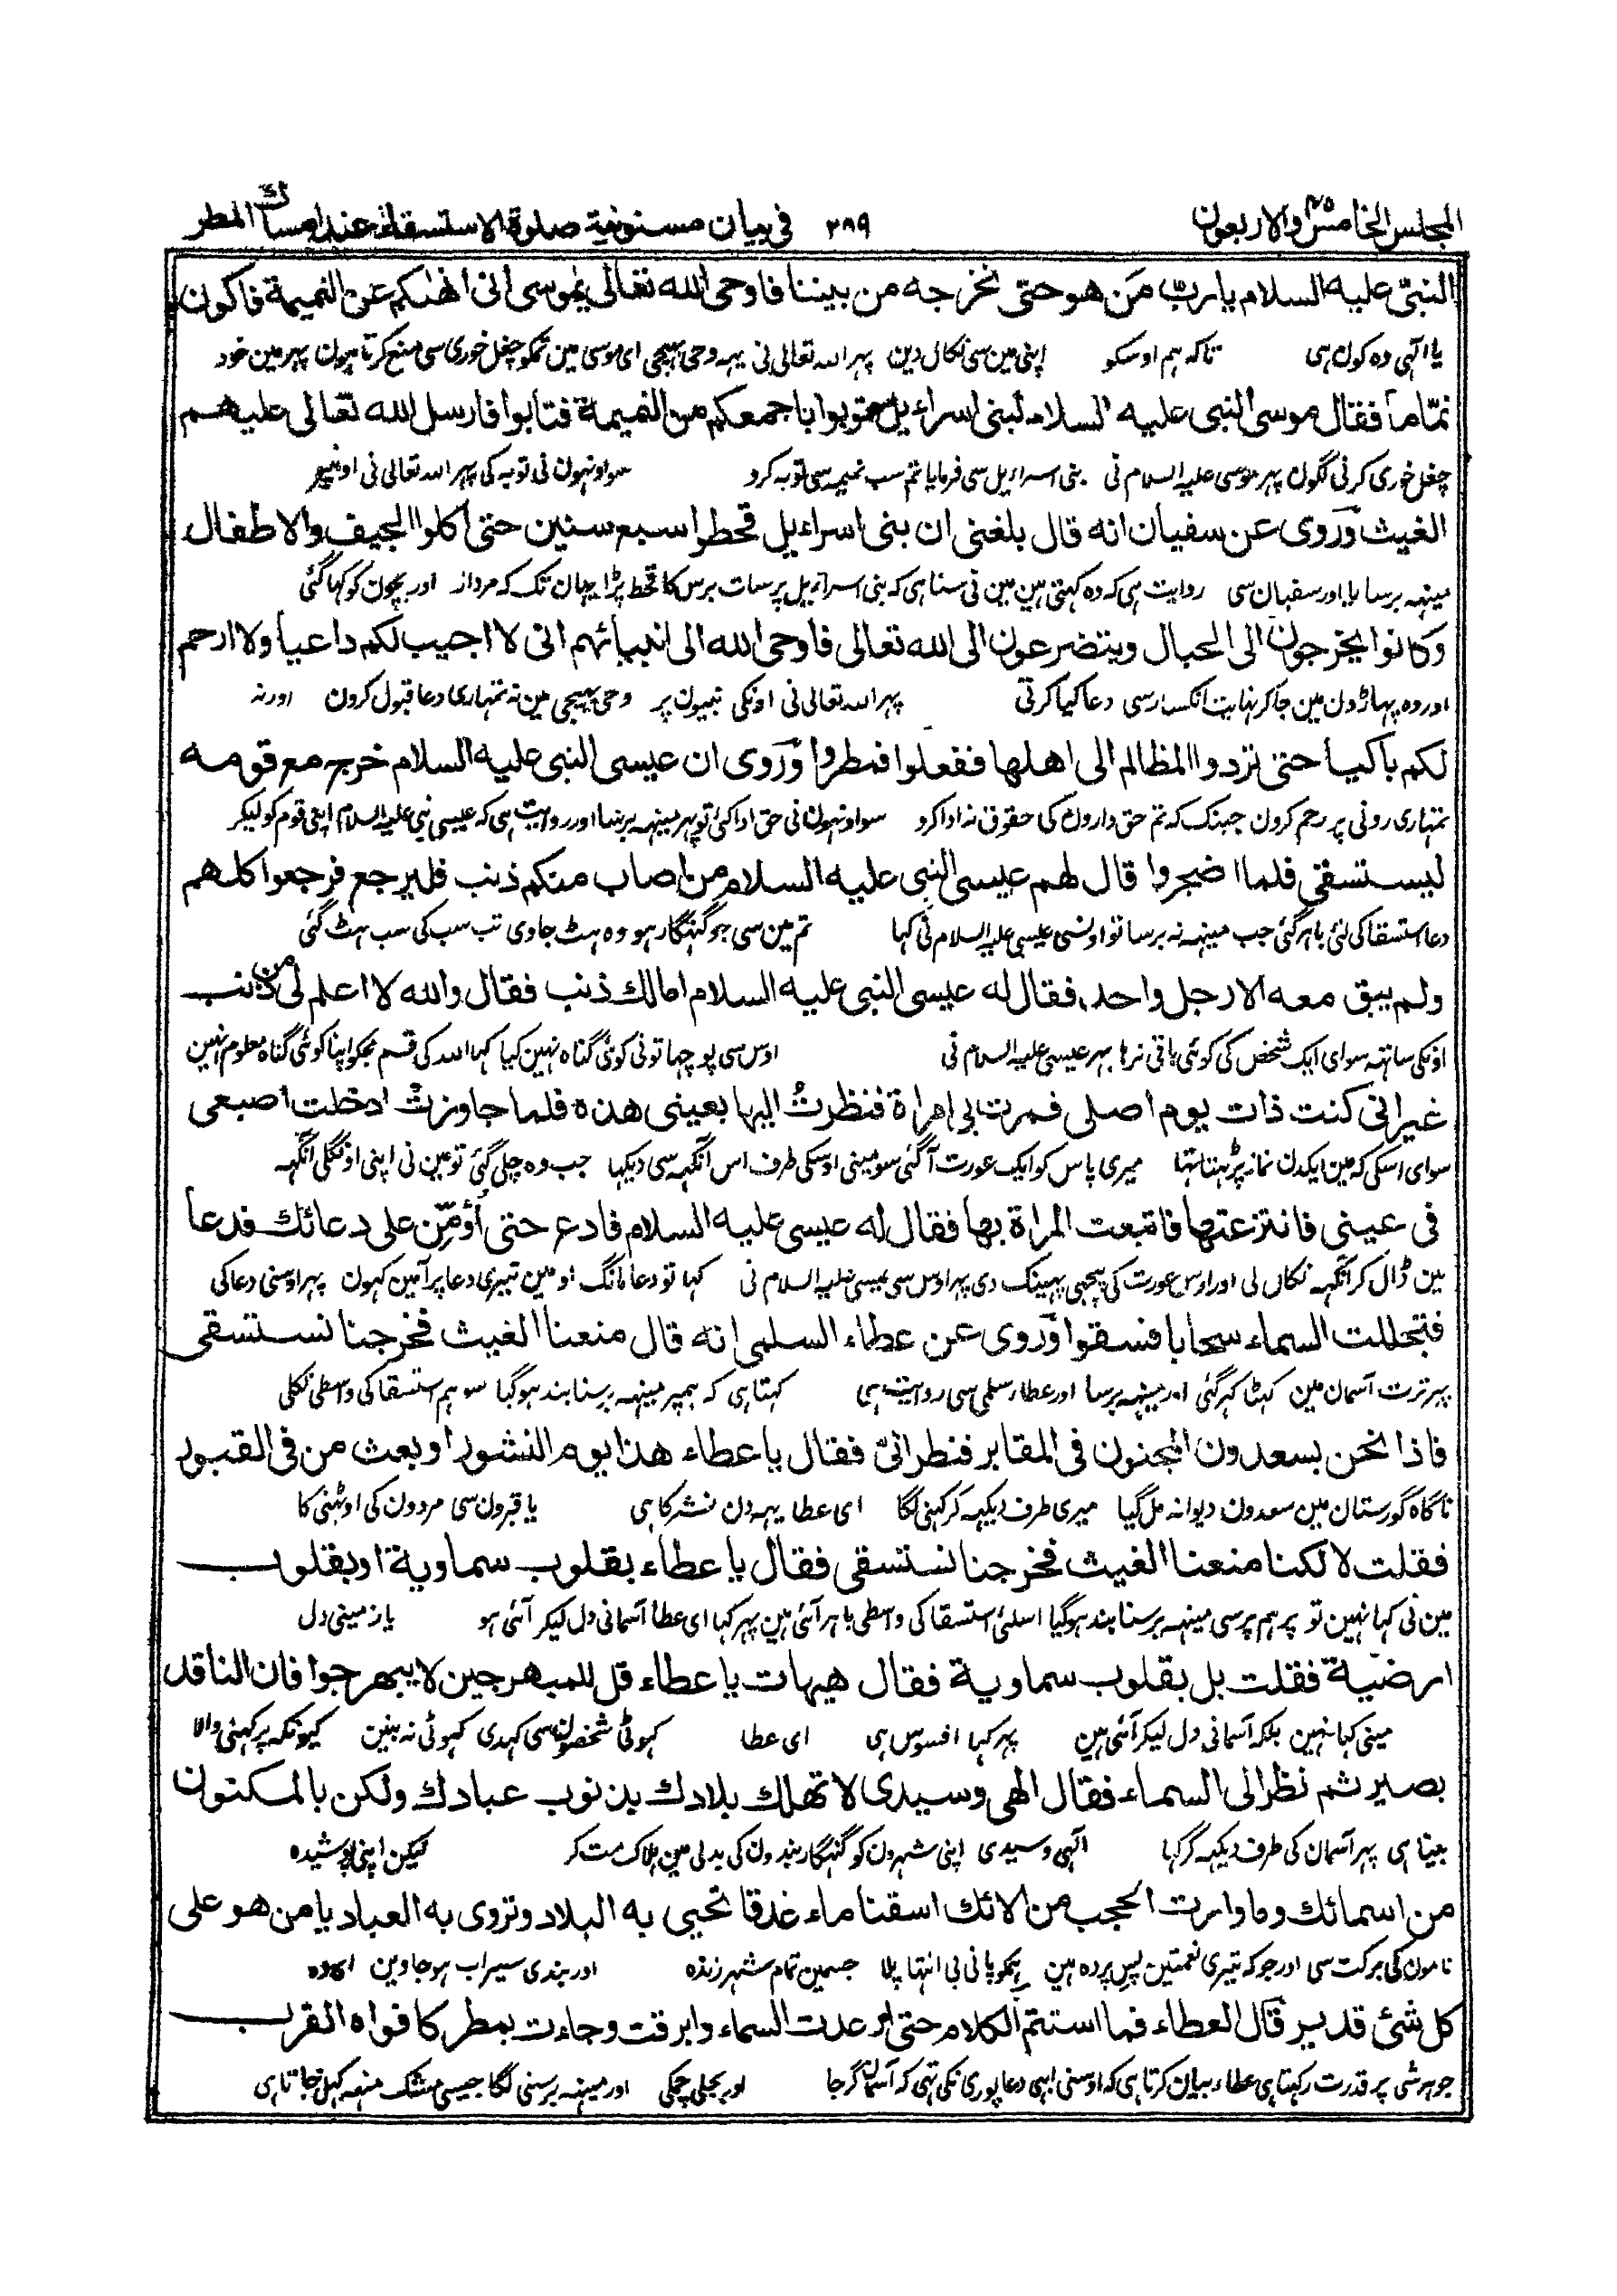 المجلس الخامس والاربعون ۲۸۹ في بيان مسنونية صلوة الاستسقاء عند امساك المطر
النبيّ عليه السلام يا ربّ مَن هو حتى نخرجه من بيننا فاوحى الله تعالى يموسى انى انهٰكم عن النميمة فاكون
يا الٰہی وہ کون ہی تاکہ ہم اوسکو اپنی مین سی نکال دین پہر اللہ تعالی نی یہہ وحی بہیجی ای موسی مین تمکو چغل خوری سی منع کرتا ہون پہر مین خود
نمّاماً فقال موسى النبى عليه السلام لبنى اسراءيل توبوا باجمعكم من النميمة فتابوا فارسل الله تعالى عليهم
چغل خوری کرنی لگون پہر موسی علیہ السلام نی بنی اسراءیل سی فرمایا تم سب نمیمہ سی توبہ کرو سو اونہون نی توبہ کی پہر اللہ تعالی نی اونپر
الغيث وروى عن سفيان انه قال بلغنى ان بنى اسراءيل قحطوا سبع سنين حتى اكلوا الجيف والاطفال
مینہہ برسایا اور سفیان سی روایت ہی کہ وہ کہتی ہین مین نی سنا ہی کہ بنی اسراءیل پر سات برس کا قحط پڑا یہان تک کہ مردار اور بچون کو کہا گئی
وكانوا يخرجون الى الجبال ويتضرعون الى الله تعالى فاوحى الله الى انبيائهم انى لا اجيب لكم داعياً ولا ارحم
اور وہ پہاڑون مین جاکر نہایت انکسار سی دعا کیا کرتی پہر اللہ تعالی نی اونکی نبیون پر وحی بہیجی مین نہ تمہاری دعا قبول کرون اور نہ
لكم باكياً حتى تردوا المظالم الى اهلها ففعلوا فمطروا وروى ان عيسى النبى عليه السلام خرج مع قومه
تمہاری رونی پر رحم کرون جبتک کہ تم حق دارون کی حقوق نہ ادا کرو سو اونہون نی حق ادا کئی تو پہر مینہہ برسا اور روایت ہی کہ عیسی نبی علیہ السلام اپنی قوم کو لیکر
ليستسقى فلما اضجروا قال لهم عيسى النبى عليه السلام من اصاب منكم ذنب فليرجع فرجعوا كلهم
دعا استسقا کی لئی باہر گئی جب مینہہ نہ برسا تو اونسی عیسی علیہ السلام نی کہا تم مین سی جو گنہگار ہو وہ ہٹ جاوی تب سب کی سب ہٹ گئی
ولم يبق معه الا رجل واحد فقال له عيسى النبى عليه السلام اما لك ذنب فقال والله لا اعلم لى من ذنب
اونکی ساتہہ سوای ایک شخص کی کوئی باقی نرہا پہر عیسی علیہ السلام نی اوس سی پوچہا تونی کوئی گناہ نہین کیا کہا اللہ کی قسم مجکو اپنا کوئی گناہ معلوم نہین
غير انى كنت ذات يوم اصلى فمرت بى امراة فنظرتُ اليها بعينى هذه فلما جاوزتْ ادخلت اصبعى
سوای اسکی کہ مین ایکدن نماز پڑہتا تہا میری پاس کو ایک عورت آ گئی سو مینی اوسکی طرف اس آنکہہ سی دیکہا جب وہ چلی گئی تو مین نی اپنی اونگلی آنکہہ
فى عينى فانتزعتها فاتبعت المراة بها فقال له عيسى عليه السلام فادع حتى أؤمّن على دعائك فدعا
مین ڈال کر آنکہہ نکال لی اور اوس عورت کی پیچہی پہینک دی پہر اوس سی عیسی علیہ السلام نی کہا تو دعا مانگ او مین تیری دعا پر آمین کہون پہر اوسنی دعا کی
فتجللت السماء سحابا فسقوا وروى عن عطاء السلمى انه قال منعنا الغيث فخرجنا نستسقى
پہر ترت آسمان مین گہٹا گہر گئی اور مینہہ برسا اور عطار سلمی سی روایت ہی کہتا ہی کہ ہمپر مینہہ برسنا بند ہوگیا سو ہم استسقا کی واسطی نکلی
فاذا نحن بسعدون المجنون فى المقابر فنظر الىّ فقال يا عطاء هذا يوم النشور او بعث من فى القبور
ناگاہ گورستان مین سعدون دیوانہ مل گیا میری طرف دیکہہ کر کہنی لگا ای عطا یہہ دن نشر کا ہی یا قبرون سی مردون کی اوٹہنی کا
فقلت لا لكنا منعنا الغيث فخرجنا نستسقى فقال يا عطاء بقلوب سماوية او بقلوب
مین نی کہا نہین تو پر ہم پر سی مینہہ برسنا بند ہوگیا اسلئی استسقا کی واسطی باہر آئی ہین پہر کہا ای عطا آسمانی دل لیکر آئی ہو یا زمینی دل
ارضيّة فقلت بل بقلوب سماوية فقال هيهات يا عطاء قل للمبهرجين لا يبهرجوا فان الناقد
مینی کہا نہین بلکہ آسمانی دل لیکر آئی ہین پہر کہا افسوس ہی ای عطا کہوٹی شخصون سی کہدی کہوٹی نہ بنین کیونکہ پرکہنی والا
بصير ثم نظر الى السماء فقال الهى وسيدى لا تهلك بلادك بذنوب عبادك ولكن بالمكنون
بینا ہی پہر آسمان کی طرف دیکہہ کر کہا الٰہی و سیدی اپنی شہرون کو گنہگار بندون کی بدلی مین ہلاک مت کر لیکن اپنی پوشیدہ
من اسمائك وما وارت الحجب من الائك اسقنا ماء غدقا تحيى به البلاد وتروى به العباد يا من هو على
نامون کی برکت سی اور جو کہ تیری نعمتین پس پردہ ہین ہمکو پانی بی انتہا پلا جسمین تمام شہر زندہ اور بندی سیراب ہو جاوین اوہ
كل شئ قدير قال العطاء فما استتم الكلام حتى ارعدت السماء وابرقت وجاءت بمطر كافواه القرب
جو ہر شی پر قدرت رکہتا ہی عطاء بیان کرتا ہی کہ اوسنی ابہی دعا پوری نکی تہی کہ آسمان گرجا اور بجلی چمکی اور مینہہ برسنی لگا جیسی مشک منہہ کہل جاتا ہی